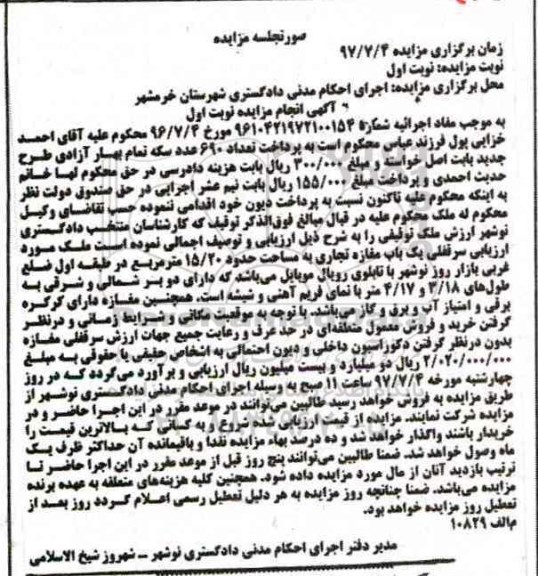 صورتجلسه مزایده
زمان برگزاری مزایده ۹۷/۷/۴
نوبت مزایده: نوبت اول
محل برگزاری مزایده: اجرای احکام مدنی دادگستری شهرستان خرمشهر
آگهی انجام مزایده نوبت اول
به موجب مفاد اجرائیه شماره ۹۶۱۰۴۲۱۹۷۲۱۰۰۱۵۴ مورخ ۹۶/۷/۴ محکوم علیه آقای احمد
خزایی پول فرزند عباس محکوم است به پرداخت تعداد ۶۹۰ عدد سکه تمام بهار آزادی طرح
جدید بابت اصل خواسته و مبلغ ۳۰۰/۰۰۰ ریال بابت هزینه دادرسی در حق محکوم لها خانم
حدیث احمدی و پرداخت مبلغ ۱۵۵/۰۰۰ ریال بابت نیم عشر اجرایی در حق صندوق دولت نظر
به اینکه محکوم علیه تاکنون نسبت به پرداخت دیون خود اقدامی ننموده حسب تقاضای وکیل
محکوم له ملک محکوم علیه در قبال مبالغ فوق‌الذکر توقیف که کارشناسان منتخب دادگستری
نوشهر ارزش ملک توقیفی را به شرح ذیل ارزیابی و توصیف اجمالی نموده است ملک مورد
ارزیابی سرقفلی یک باب مغازه تجاری به مساحت حدود ۱۵/۲۰ مترمربع در طبقه اول ضلع
غربی بازار روز نوشهر با تابلوی رویال موبایل می‌باشد که دارای دو بر شمالی و شرقی به
طول‌های ۳/۱۸ و ۴/۱۷ متر با نمای فریم آهنی و شیشه است. همچنین مغازه دارای کرکره
برقی و امتیاز آب و برق و گاز می‌باشد. با توجه به موقعیت مکانی و شرایط زمانی و درنظر
گرفتن خرید و فروش معمول منطقه‌ای در حد عرف و رعایت جمیع جهات ارزش سرقفلی مغازه
بدون درنظر گرفتن دکوراسیون داخلی و دیون احتمالی به اشخاص حقیقی یا حقوقی به مبلغ
۲/۰۲۰/۰۰۰/۰۰۰ ریال دو میلیارد و بیست میلیون ریال ارزیابی و برآورد می‌گردد که در روز
چهارشنبه مورخه ۹۷/۷/۴ ساعت ۱۱ صبح به وسیله اجرای احکام مدنی دادگستری نوشهر از
طریق مزایده به فروش خواهد رسید طالبین می‌توانند در موعد مقرر در این اجرا حاضر و در
مزایده شرکت نمایند. مزایده از قیمت ارزیابی شده شروع و به کسانی که بالاترین قیمت را
خریدار باشند واگذار خواهد شد و ده درصد بهاء مزایده نقدا و باقیمانده آن حداکثر ظرف یک
ماه وصول خواهد شد. ضمنا طالبین می‌توانند پنج روز قبل از موعد مقرر در این اجرا حاضر تا
ترتیب بازدید آنان از مال مورد مزایده داده شود. همچنین کلیه هزینه‌های متعلقه به عهده برنده
مزایده می‌باشد. ضمنا چنانچه روز مزایده به هر دلیل تعطیل رسمی اعلام گردد روز بعد از
تعطیل روز مزایده خواهد بود.
م‌الف ۱۰۸۲۹
مدیر دفتر اجرای احکام مدنی دادگستری نوشهر – شهروز شیخ الاسلامی